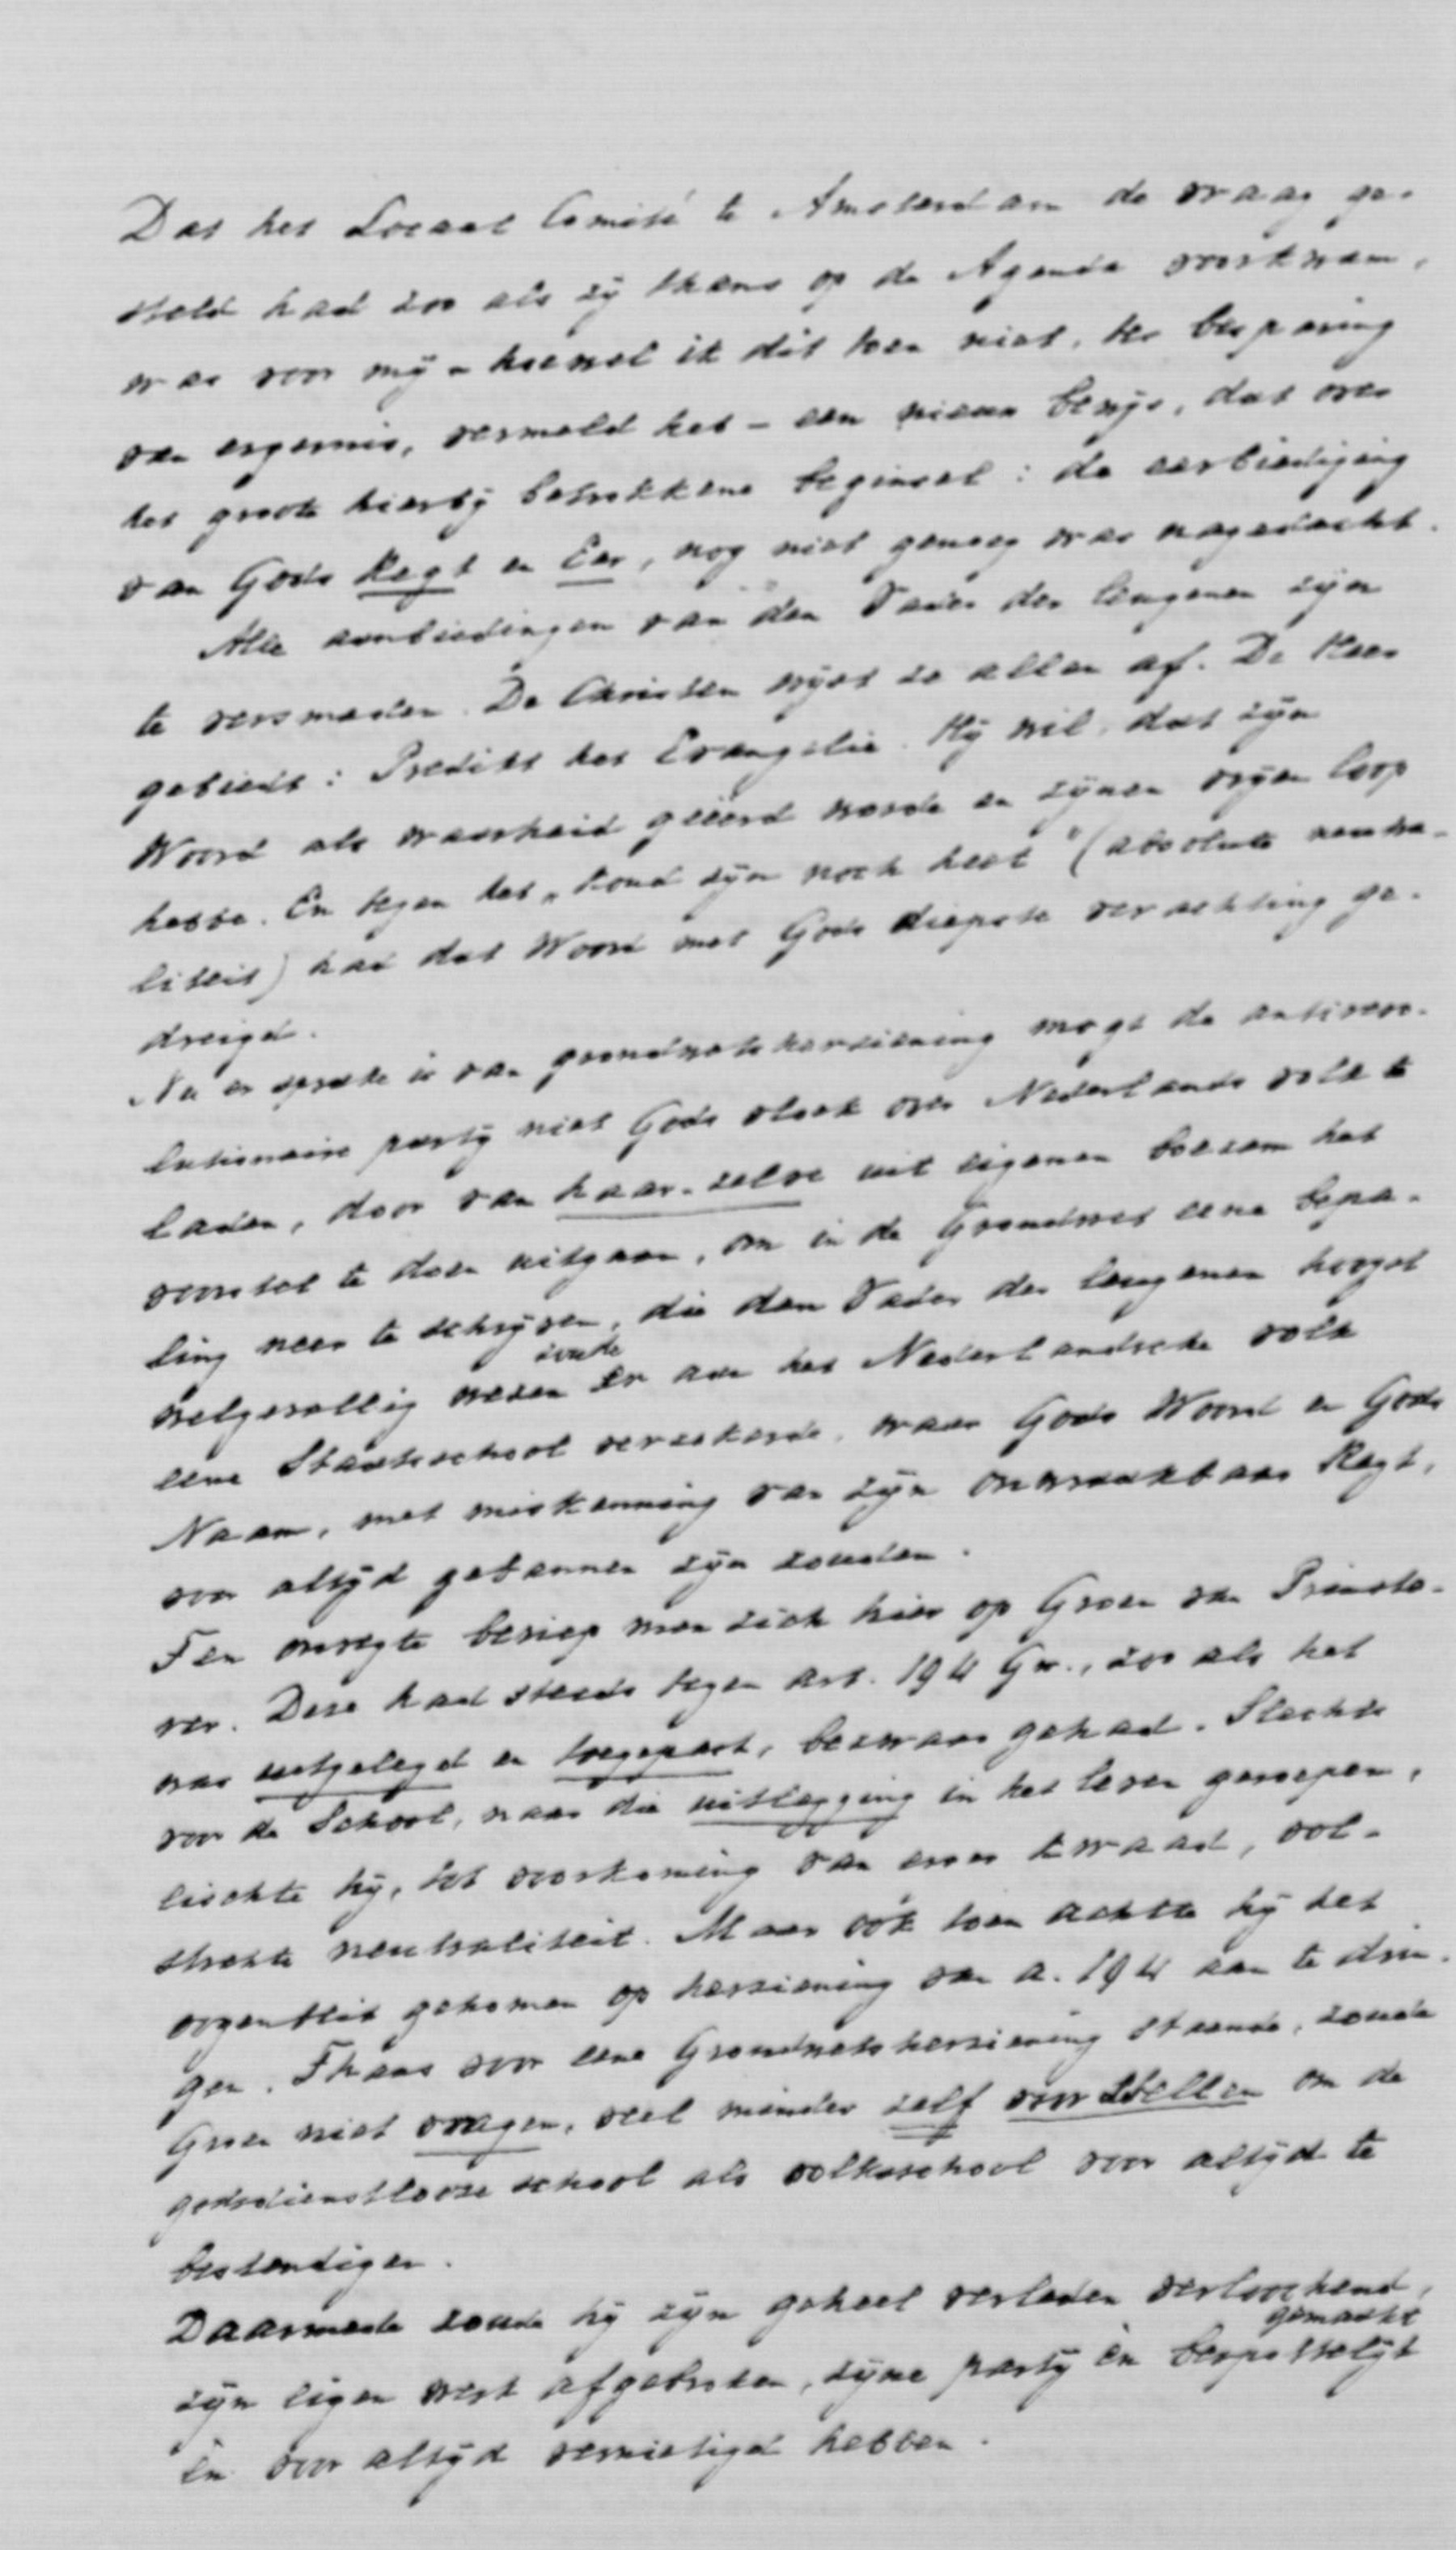 Dat het Locaal Comité te Amsterdam de vraag ge-
steld had zoo als zij thans op de Agenda voorkwam,
was voor mij - hoewel ik dit toen niet, ter besparing
van ergernis, vermeld heb - een nieuw bewijs, dat over
het groote hierbij betrokkene beginsel: de eerbiediging
van Gods Regt en Eer, nog niet genoeg was nagedacht.
Alle aanbiedingen van den Vader der leugenen zijn
te versmaden. De Christen wijst ze allen af. De Heer
gebiedt: Predikt het Evangelie. Hij wil, dat zijn
Woord als waarheid geëerd worde en zijnen vrijen loop
hebbe. En tegen het „koud zijn noch heet" (absolute neutra-
liteit) had dat Woord met Gods diepste verachting ge-
dreigd.
Nu er sprake is van grondwetsherziening mogt de antirevo-
lutionaire partij niet Gods vloek over Nederlands volk te
laden, door van haar-zelve uit eigenen boezem het
voorstel te doen uitgaan, om in de Grondwet eene bepa-
ling neer te schrijven, die den Vader der leugenen hoogst
zoude
welgevallig wezen En aan het Nederlandsche volk
eene Staatsschool verzekerde, waar Gods Woord en Gods
Naam, met miskenning van zijn onwraakbaar Regt,
voor altijd gebannen zijn zouden.
Ten onregte beriep men zich hier op Groen van Prinste-
rer. Deze had steeds tegen art. 194 Gw., zoo als het
was uitgelegd en toegepast, bezwaar gehad. Slechts
voor de School, naar die uitlegging in het leven geroepen,
eischte hij, tot voorkoming van erger kwaad, vol-
strekte neutraliteit. Maar óók toen achtte hij het
oogenblik gekomen op herziening van a. 194 aan te drin-
gen. Thans voor eene Grondwetsherziening staande, zoude
Groen niet vragen, veel minder zelf voorstellen om de
godsdienstlooze school als volksschool voor altijd te
bestendigen.
Daarmede zoude hij zijn geheel verleden verloochend,
gemaakt
zijn eigen werk afgebroken, zijne partij èn bespottelijk
èn voor altijd vernietigd hebben.